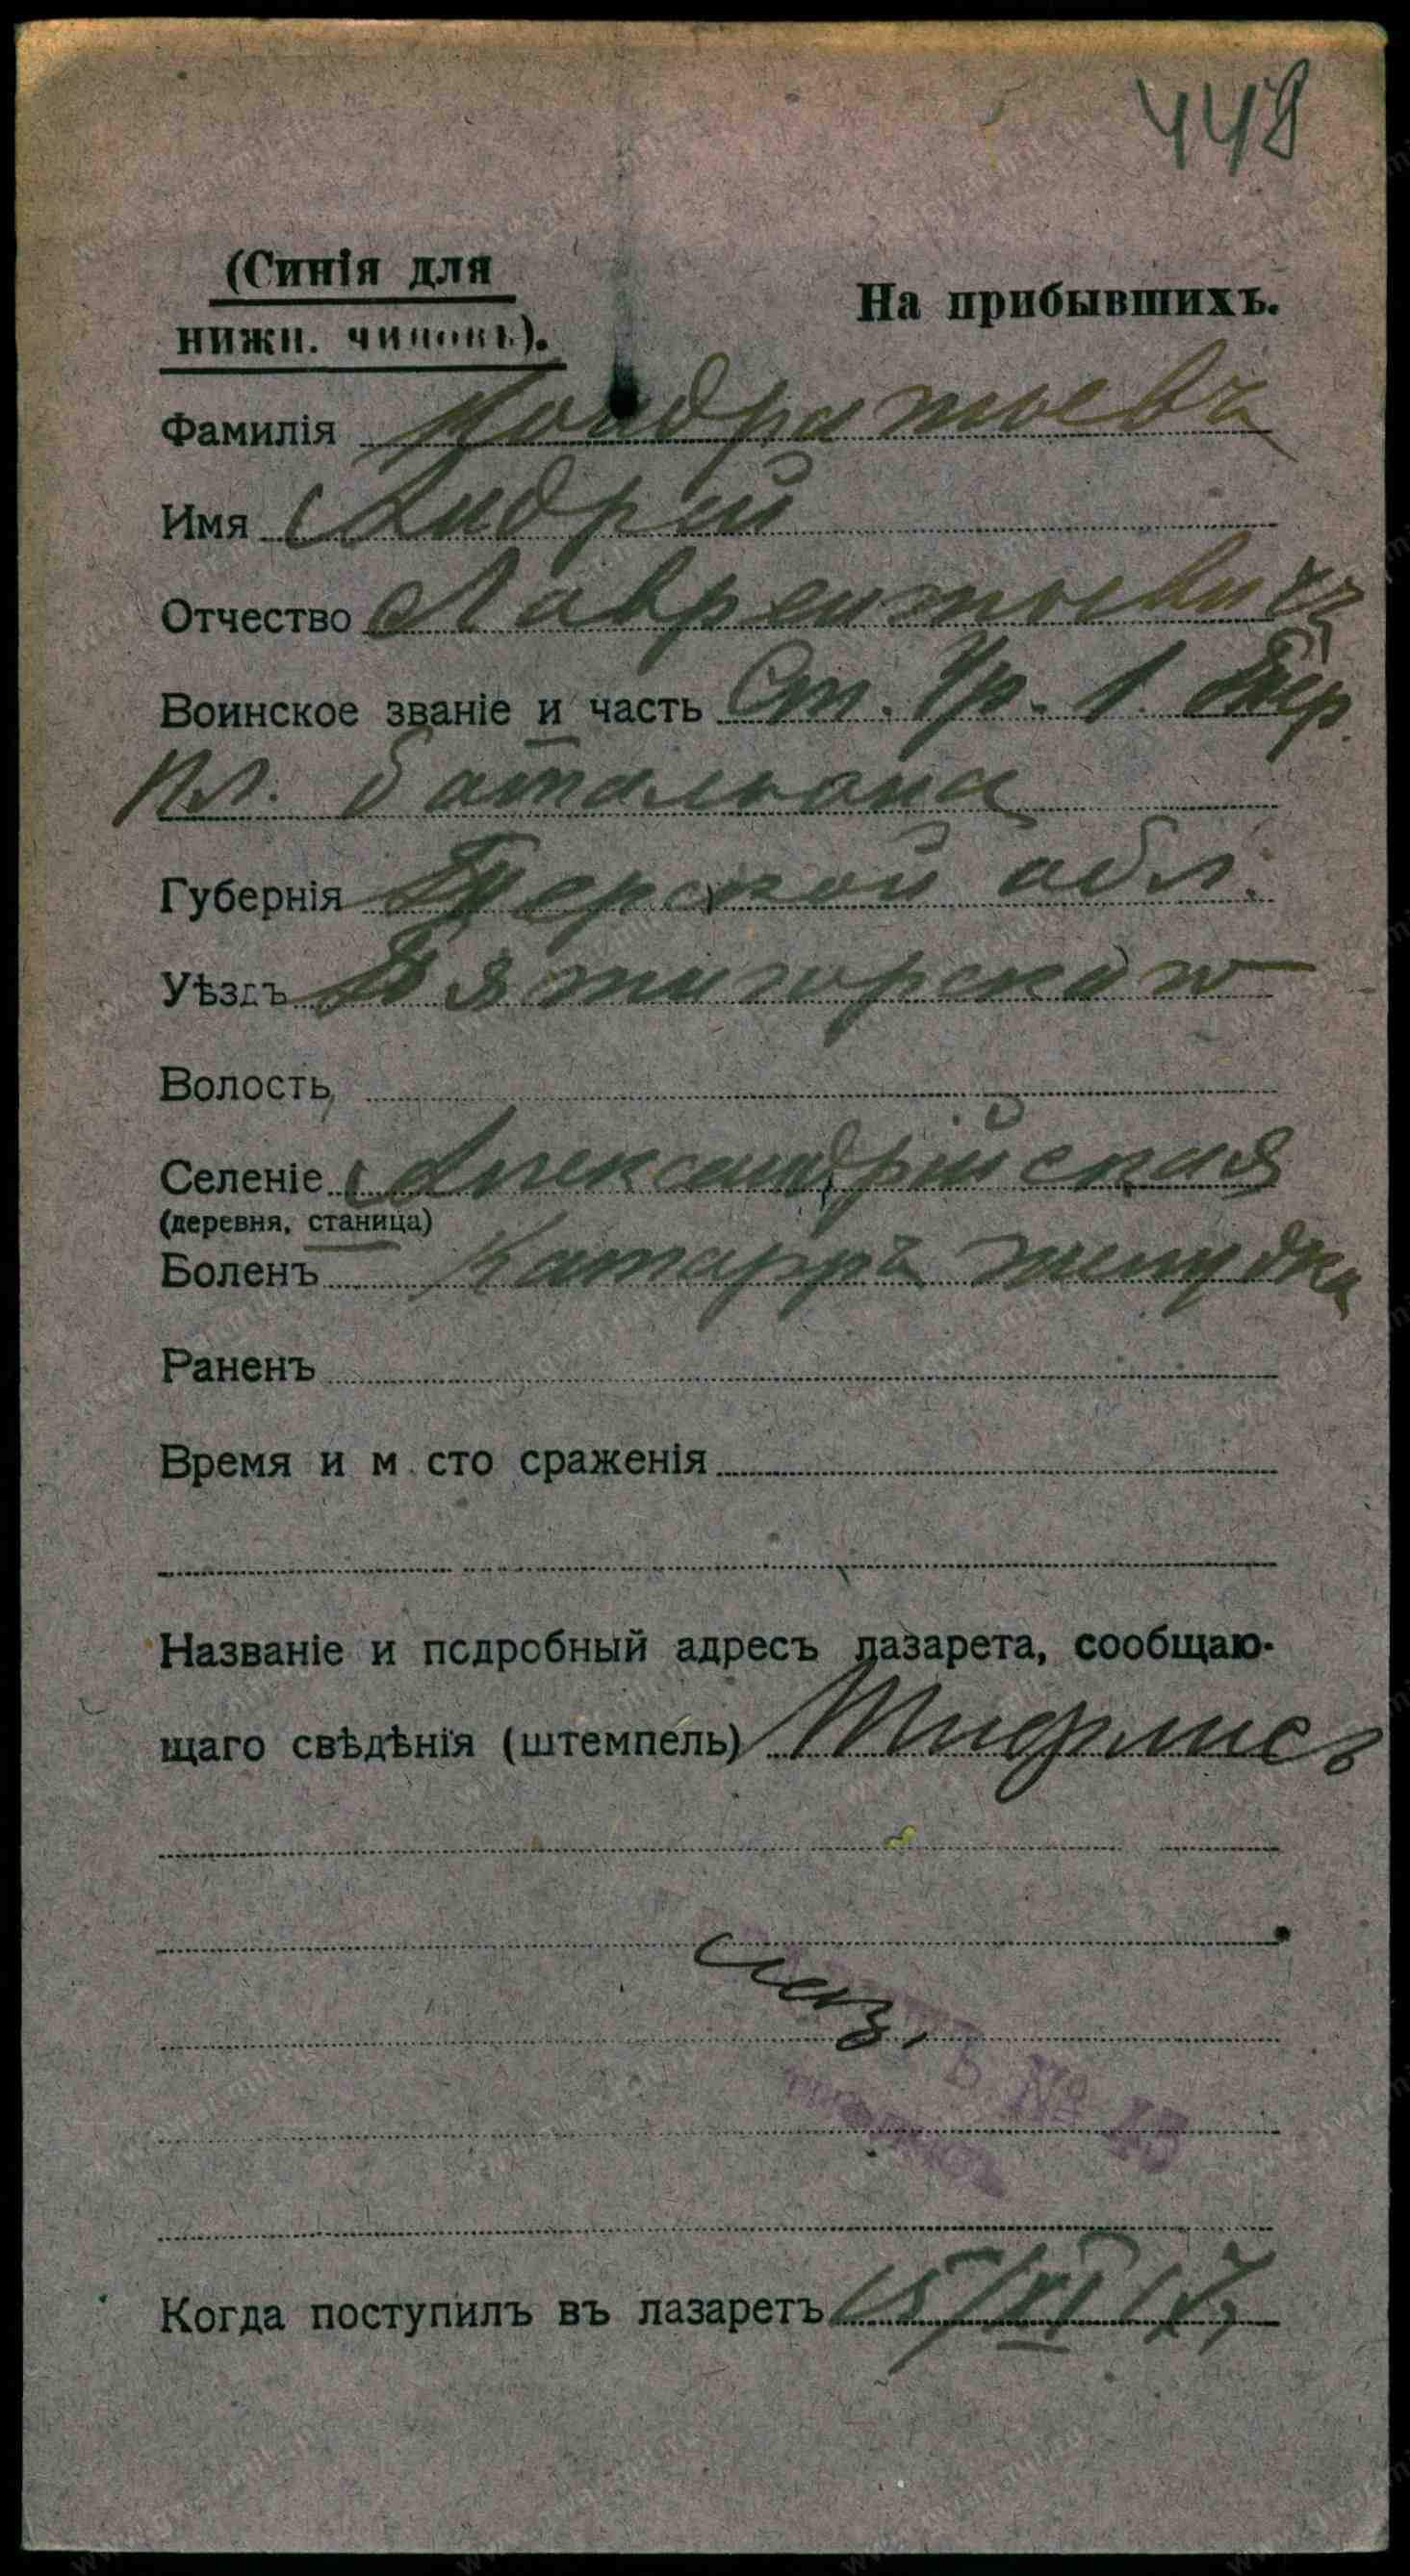 448
(Синія для
нижн. чиновъ).
На прибывшихъ.
Фамилія Кондратьевъ
Имя Андрей
Отчество Лаврентьевичъ
Воинское званіе и часть Ст. Ур. 1 Тер.
Пл. баталіона
Губернія Терской обл.
Уѣздъ Пятигорскій
Волость
Селеніе Александрійская
(деревня, станица)
Боленъ Катарръ желудка
Раненъ
Время и м сто сраженія
Названіе и подробный адресъ лазарета, сообщаю-
щаго свѣдѣнія (штемпель) Тифлисъ
лаз.
№ 15
Когда поступилъ въ лазаретъ 15/XI 17